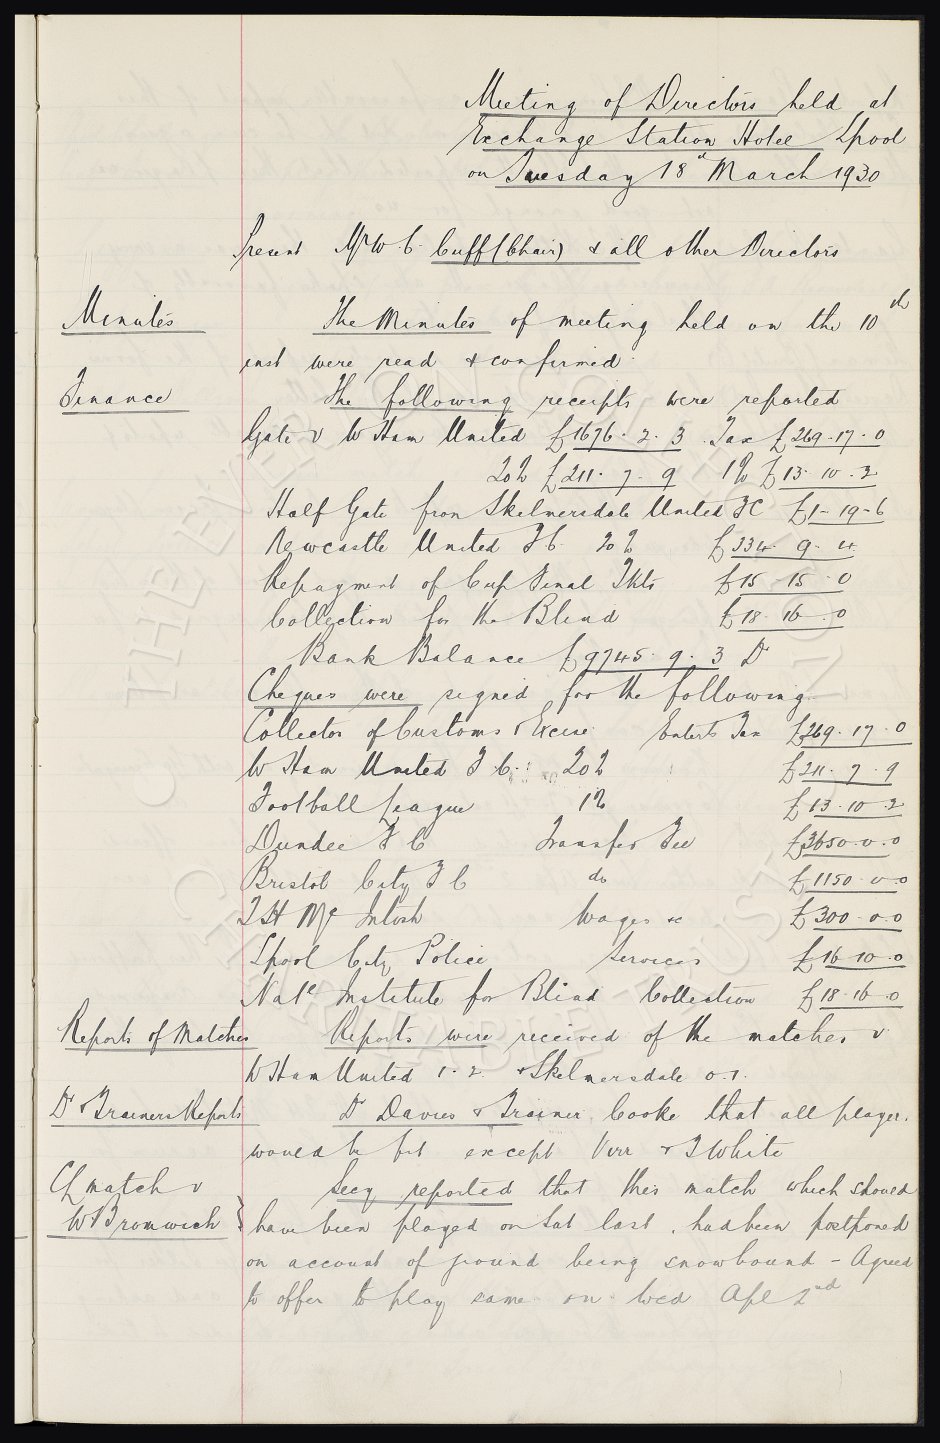 Meeting of Directors held at
Exchange Station Hotel Lpool
on Tuesday 18th March 1930
Present Mr W. C. Cuff (Chair) & all other Directors
Minutes The Minutes of meeting held on the 10th
inst were read & confirmed
Finance The following receipts were reported
Gate v W Ham United £1676. 2. 3 Tax £269. 17. 0
20% £211. 7. 9 1% £13. 10. 2
Half Gate from Skelmersdale United FC £1 - 19 - 6
Newcastle United F C. 20% £334 9. 4
Repayment of Cup Final Tkts £15 - 15 . 0
Collection for the Blind £18. 16 . 0
Bank Balance £9745. 9. 3 Dr
Cheques were signed for the following
Collector of Customs & Excise Enterts Tax £269. 17. 0
W Ham United F C. 20% £211. 7. 9
Football League 1% £13. 10. 2
Dundee F C Transfer Fee £3650. 0. 0
Bristol City F C do £1150. 0. 0
T H McIntosh Wages &c £300. 0. 0
Lpool City Police Services £16 10. 0
Natl Institute for Blind Collection £18. 16. 0
Reports of Matches Reports were received of the matches v
W Ham United 1. 2. & Skelmersdale 0. 1.
Dr & Trainers Reports Dr Davies & Trainer Cooke that all players
would be fit except Virr & T White
CL match v Secy reported that this match which should
W Bromwich have been played on Sat last, had been postponed
on account of ground being snowbound - Agreed
to offer to play same on Wed Apl 2nd
THE EVERTON COLLECTION
CHARITABLE TRUST